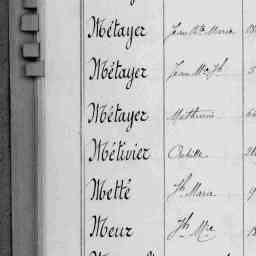 Métayer Jean Bte Marie
Métayer Jean Mie Jh 5
Métayer Mathurin
Métivier Achille
Metté Jh Marie 9
Meur Jh Mie